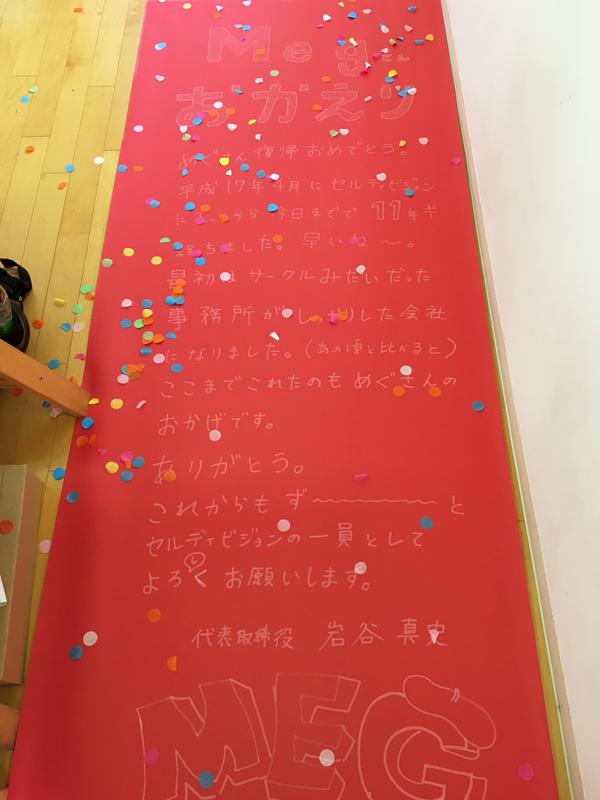 Megさん
おかえり
めぐさん復帰おめでとう。
平成17年4月にセルディビジョン
に入ってから今日までで11年半
経ちました。早いね〜。
最初はサークルみたいだった
事務所がしっかりした会社
になりました。(あの頃と比べると)
ここまでこれたのもめぐさんの
おかげです。
ありがとう。
これからもず〜〜〜〜〜〜と
セルディビジョンの一員として
よろしくお願いします。
代表取締役 岩谷 真史
MEG